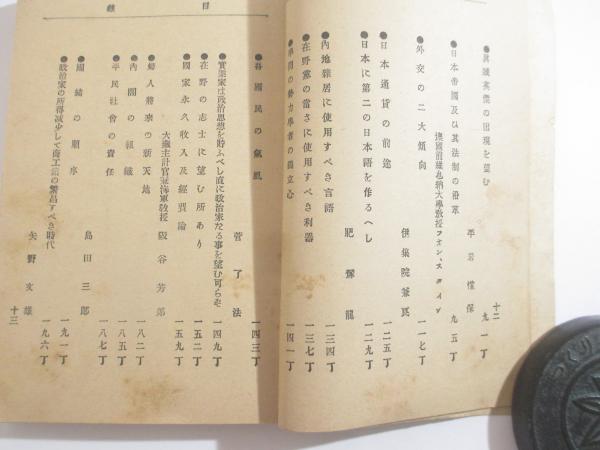 目
●眞誠英傑の出現を望む
平岩愃保
九一丁
●日本帝國及び其法制の沿革
澳國前維也納大學教授 フオン、スタイン
九五丁
●外交の二大傾向
伊集院兼良
一一七丁
●日本通貨の前途
一二五丁
●日本に第二の日本語を作るべし
肥塚龍
一二九丁
●內地雜居に使用すべき言語
一三四丁
●在野黨の當さに使用すべき利器
一三七丁
●學問の勢力學者の獨立心
一四一丁
十二
錄
●吾國民の氣風
菅了法
一四三丁
●實業家は政治思想を貯ふべし直に政治家たる事を望む可らず
一四九丁
●在野の志士に望む所あり
一五二丁
●國家永久收入及經費論
大藏主計官兼海軍敎授 阪谷芳郎
一五九丁
●婦人將來の新天地
一八二丁
●內閣の組織
一八五丁
●平民社會の責任
島田三郎
一八七丁
●團結の順序
一九一丁
●政治家の所得減少して商工業の繁昌すべき時代
矢野文雄
一九六丁
十三
つくり